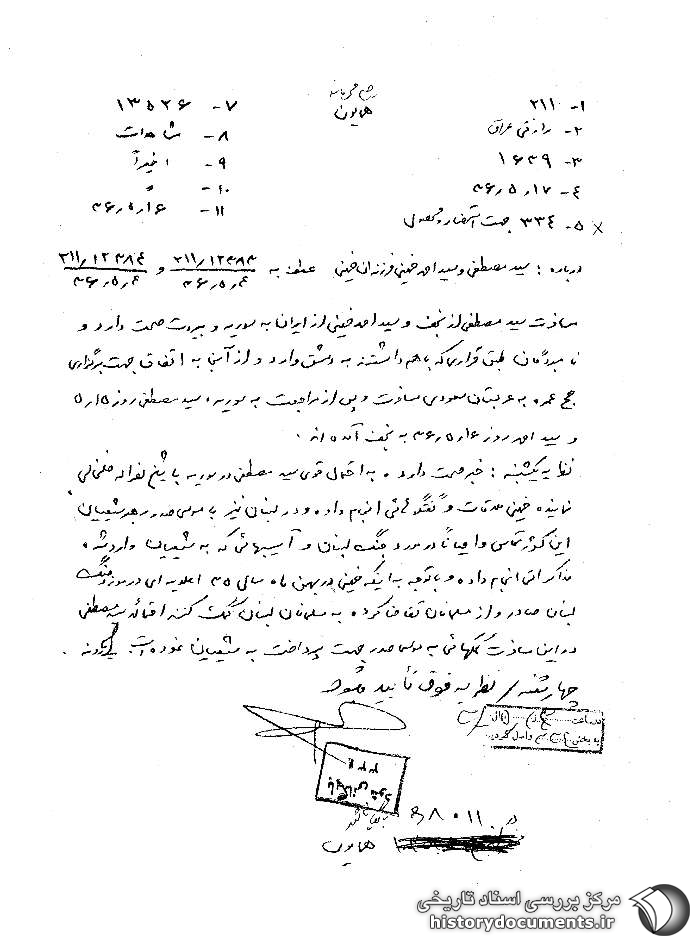 ۱- ۲۱۱
خیلی محرمانه
۷- ۱۳۵۲۶
۲- رازقی عراق
همایون
۸- مشاهدات
۳- ۱۶۳۹
۹- اخیراً
۴- ۳۶٫۵٫۱۷
۱۰-
۵- ۳۳۴ جهت استحضار و
۱۱- ۳۶٫۵٫۱۶
درباره : سید مصطفی و سید احمد خمینی فرزندان خمینی عطف به ۲۱۱٫۱۲۳۸۳ و ۲۱۱٫۱۲۳۸۴
۳۶٫۵٫۴ ۳۶٫۵٫۴
مسافرت سید مصطفی از نجف و سید احمد خمینی از ایران به سوریه و بیروت صحت دارد و
نامبردگان طبق قراری که باهم داشتند به دمشق وارد و از آنجا به اتفاق جهت برگزاری
حج عمره به عربستان سعودی مسافرت و پس از مراجعت به سوریه، سید مصطفی روز ۱۵٫۵
و سید احمد روز ۳۶٫۵٫۱۶ به نجف آمده اند .
نظریه یکشنبه : خبر صحت دارد . به احتمال قوی سید مصطفی در سوریه با شیخ نصراله خلخالی
نماینده خمینی ملاقات و گفتگوئی انجام داده و در لبنان نیز با موسی صدر رهبر شیعیان
این کشور تماس و احیاناً در مورد جنگ لبنان و آسیبهائی که به شیعیان وارد شده
مذاکراتی انجام داده و با توجه به اینکه خمینی در بهمن ماه سال ۳۵ اعلامیه ای در مورد جنگ
لبنان صادر و از مسلمانان تقاضا کرده به مسلمانان لبنان کمک کنند سید مصطفی
در این مسافرت کمکهائی به موسی صدر جهت پرداخت به شیعیان نموده است.
چهارشنبه / نظریه فوق تأیید میشود
به بخش ۳۱۲ واصل گردید
بایگانی شد
همایون
مرکز بررسی اسناد تاریخی
historydocuments.ir